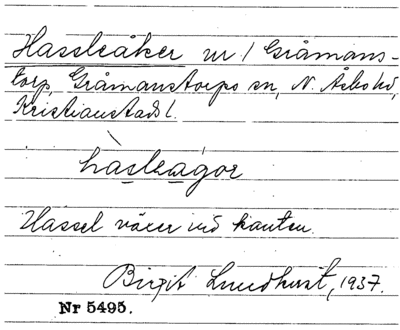 Hassleåker nr 1 Gråmans-
torp, Gråmanstorps sn, N. Åsbo hd,
Kristianstads l.
hasleagor
Hassel växer vid kanten.
Birgit Lundkvist, 1937.
Nr 5495.